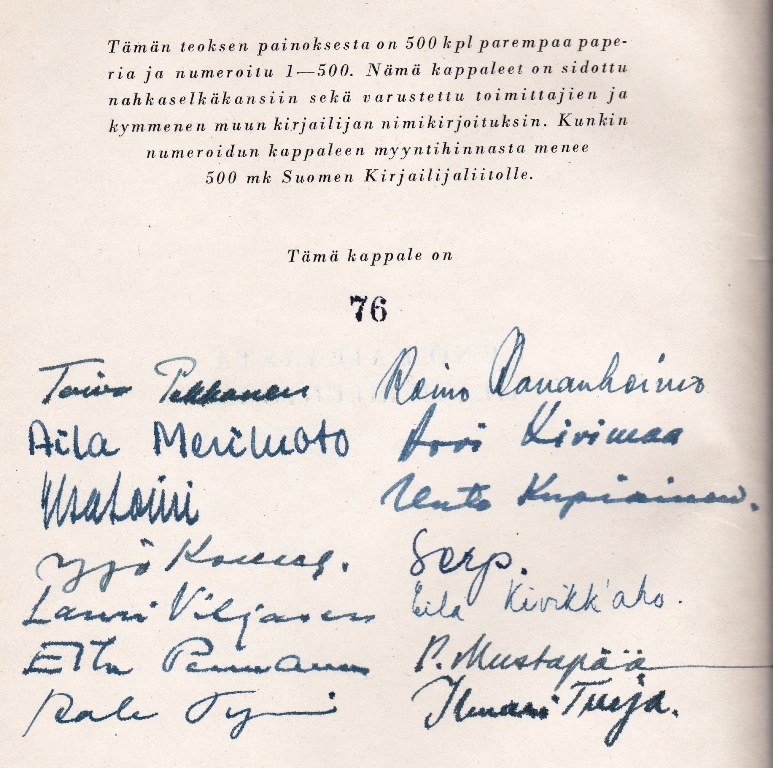 Tämän teoksen painoksesta on 500 kpl parempaa pape-
ria ja numeroitu 1—500. Nämä kappaleet on sidottu
nahkaselkäkansiin sekä varustettu toimittajien ja
kymmenen muun kirjailijan nimikirjoituksin. Kunkin
numeroidun kappaleen myyntihinnasta menee
500 mk Suomen Kirjailijaliitolle.
Tämä kappale on
76
Toivo Pekkanen
Raino Rananheimo
Aila Meriluoto
Arvi Kivimaa
Unto Kupiainen.
Yrjö
Serp.
Lauri Viljanen
Eila Kivikk'aho.
Ella Pennanen
P. Mustapää
Ilmari Turja.